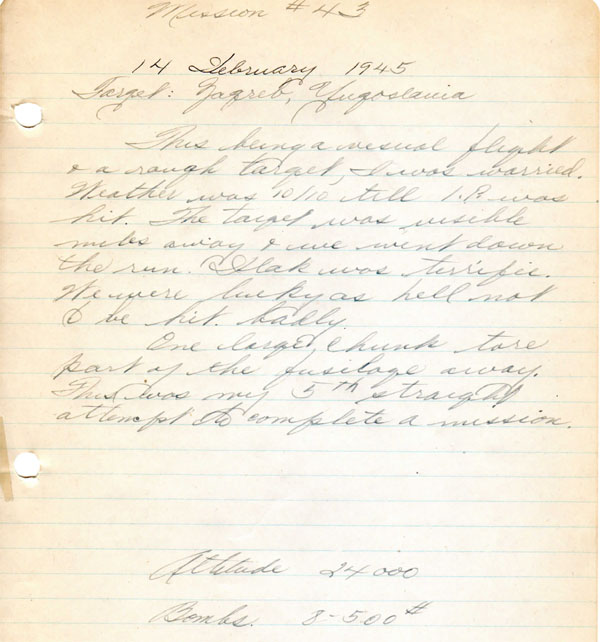 Mission #43
14 February 1945
Target: Zagreb, Yugoslavia
This being a visual flight
& a rough target, I was worried.
Weather was 10/10 till I.P. was
hit. The target was visible
miles away & we went down
the run. Flak was terrific.
We were lucky as hell not
to be hit badly.
One large chunk tore
part of the fuselage away.
This was my 5th straight
attempt to complete a mission.
Altitude 24000
Bombs. 8-500#